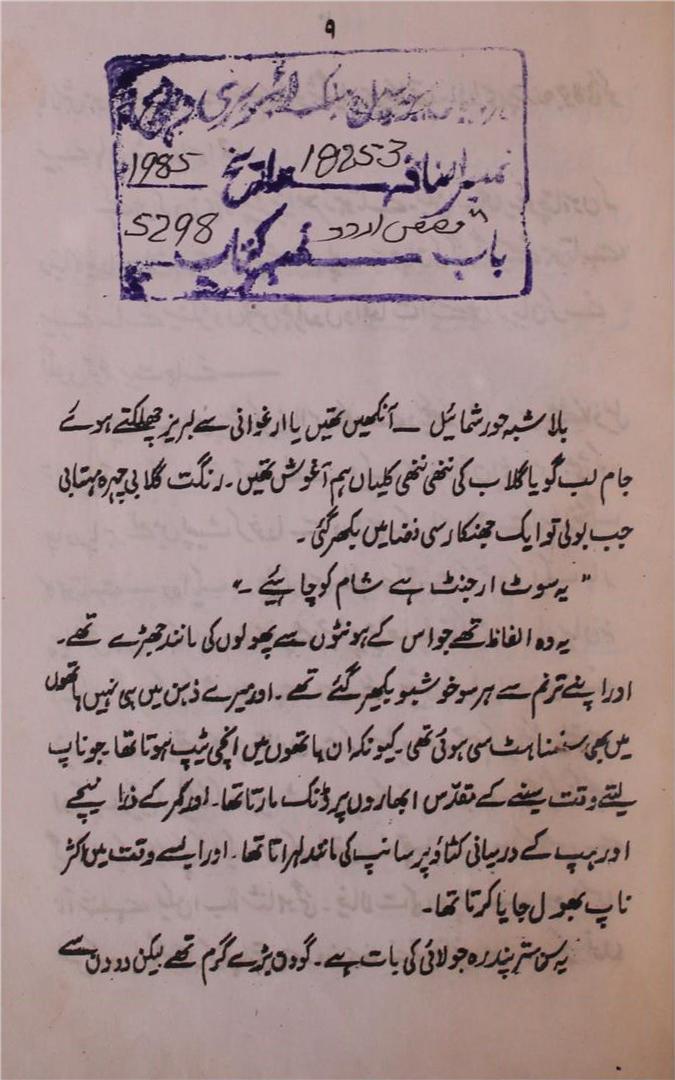 ۹
دہلی پبلک لائبریری
نمبر اضافہ 18253 تاریخ 1985
باب قصص اردو نمبر کتاب 5298
بلا شبہ حور شمائیل ۔ آنکھیں تھیں یا ارغوانی سے لبریز چھلکتے ہوئے
جام لب گویا گلاب کی ننھی ننھی کلیاں ہم آغوش تھیں ۔ رنگت گلابی چہرہ مہتابی
جب بولی تو ایک جھنکار سی فضا میں بکھر گئی ۔
" یہ سوٹ ارجنٹ ہے شام کو چاہیئے ۔"
یہ وہ الفاظ تھے جو اس کے ہونٹوں سے پھولوں کی مانند جھڑے تھے ۔
اور اپنے ترنم سے ہر سو خوشبو بکھیر گئے تھے ۔ اور میرے ذہن میں ہی نہیں ہاتھوں
میں بھی سنسناہٹ سی ہوئی تھی ۔ کیونکہ ان ہاتھوں میں انچی ٹیپ ہوتا تھا ۔ جو ناپ
لیتے وقت سینے کے مقدّس ابھاروں پر ڈنک مارتا تھا ۔ اور کمر کے ذرا نیچے
اور ہپ کے درمیانی کٹاؤ پر سانپ کی مانند لہراتا تھا ۔ اور ایسے وقت میں اکثر
ناپ بھول جایا کرتا تھا ۔
یہ سن ستر پندرہ جولائی کی بات ہے ۔ گو دن بڑے گرم تھے لیکن دو دن سے